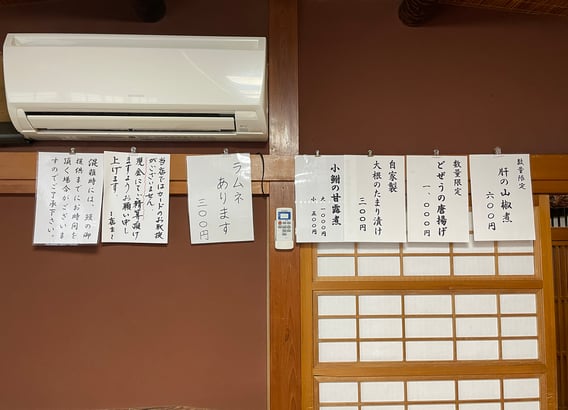 数量限定
肝の山椒煮
六〇〇円
数量限定
どぜうの唐揚げ
一、〇〇〇円
自家製
大根のたまり漬け
三〇〇円
小鮒の甘露煮
大 一〇〇〇円
小 五〇〇円
ラムネ
あります
三〇〇円
当店ではカードのお取扱
がございません
現金にてご精算頂け
ますようお願い申し
上げます
店主
混雑時には、の御
提供までにお時間を
頂く場合がございま
すのでご了承下さい。